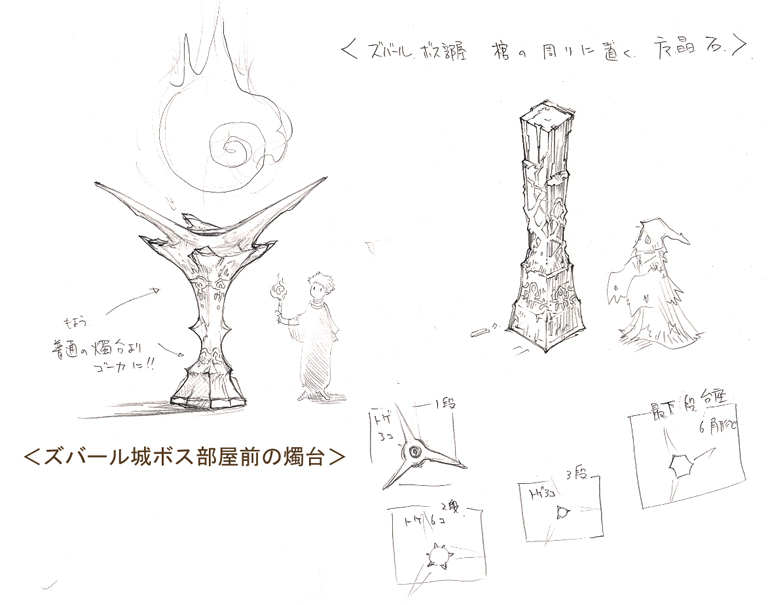 <ズバール ボス部屋 棺の周りに置く 方晶石>
もよう
普通の燭台より
ゴーカに!!
<ズバール城ボス部屋前の燭台>
1段
トゲ
3コ
2段
トゲ6コ
3段
トゲ3コ
最下段台座
6角形